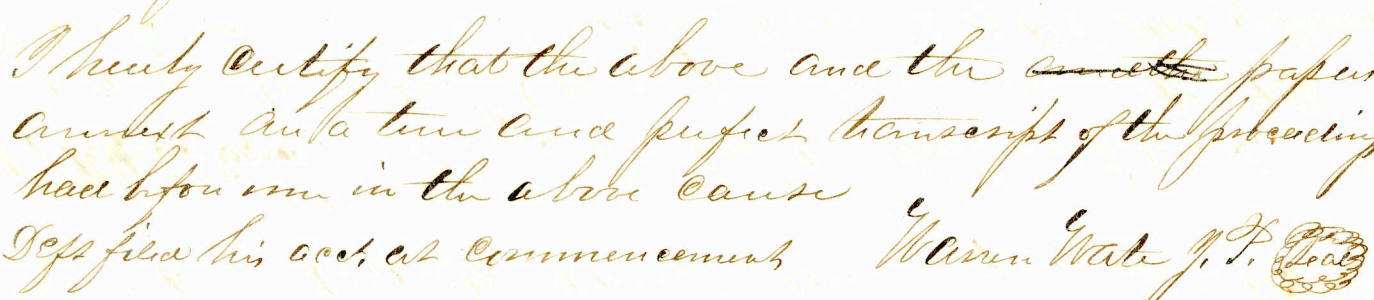 I hereby certify that the above and the and the papers
annext are a true and perfect transcript of the proceedings
had before me in the above cause
Deft filed his acct. at commencement Warren Wate J. P. Seal